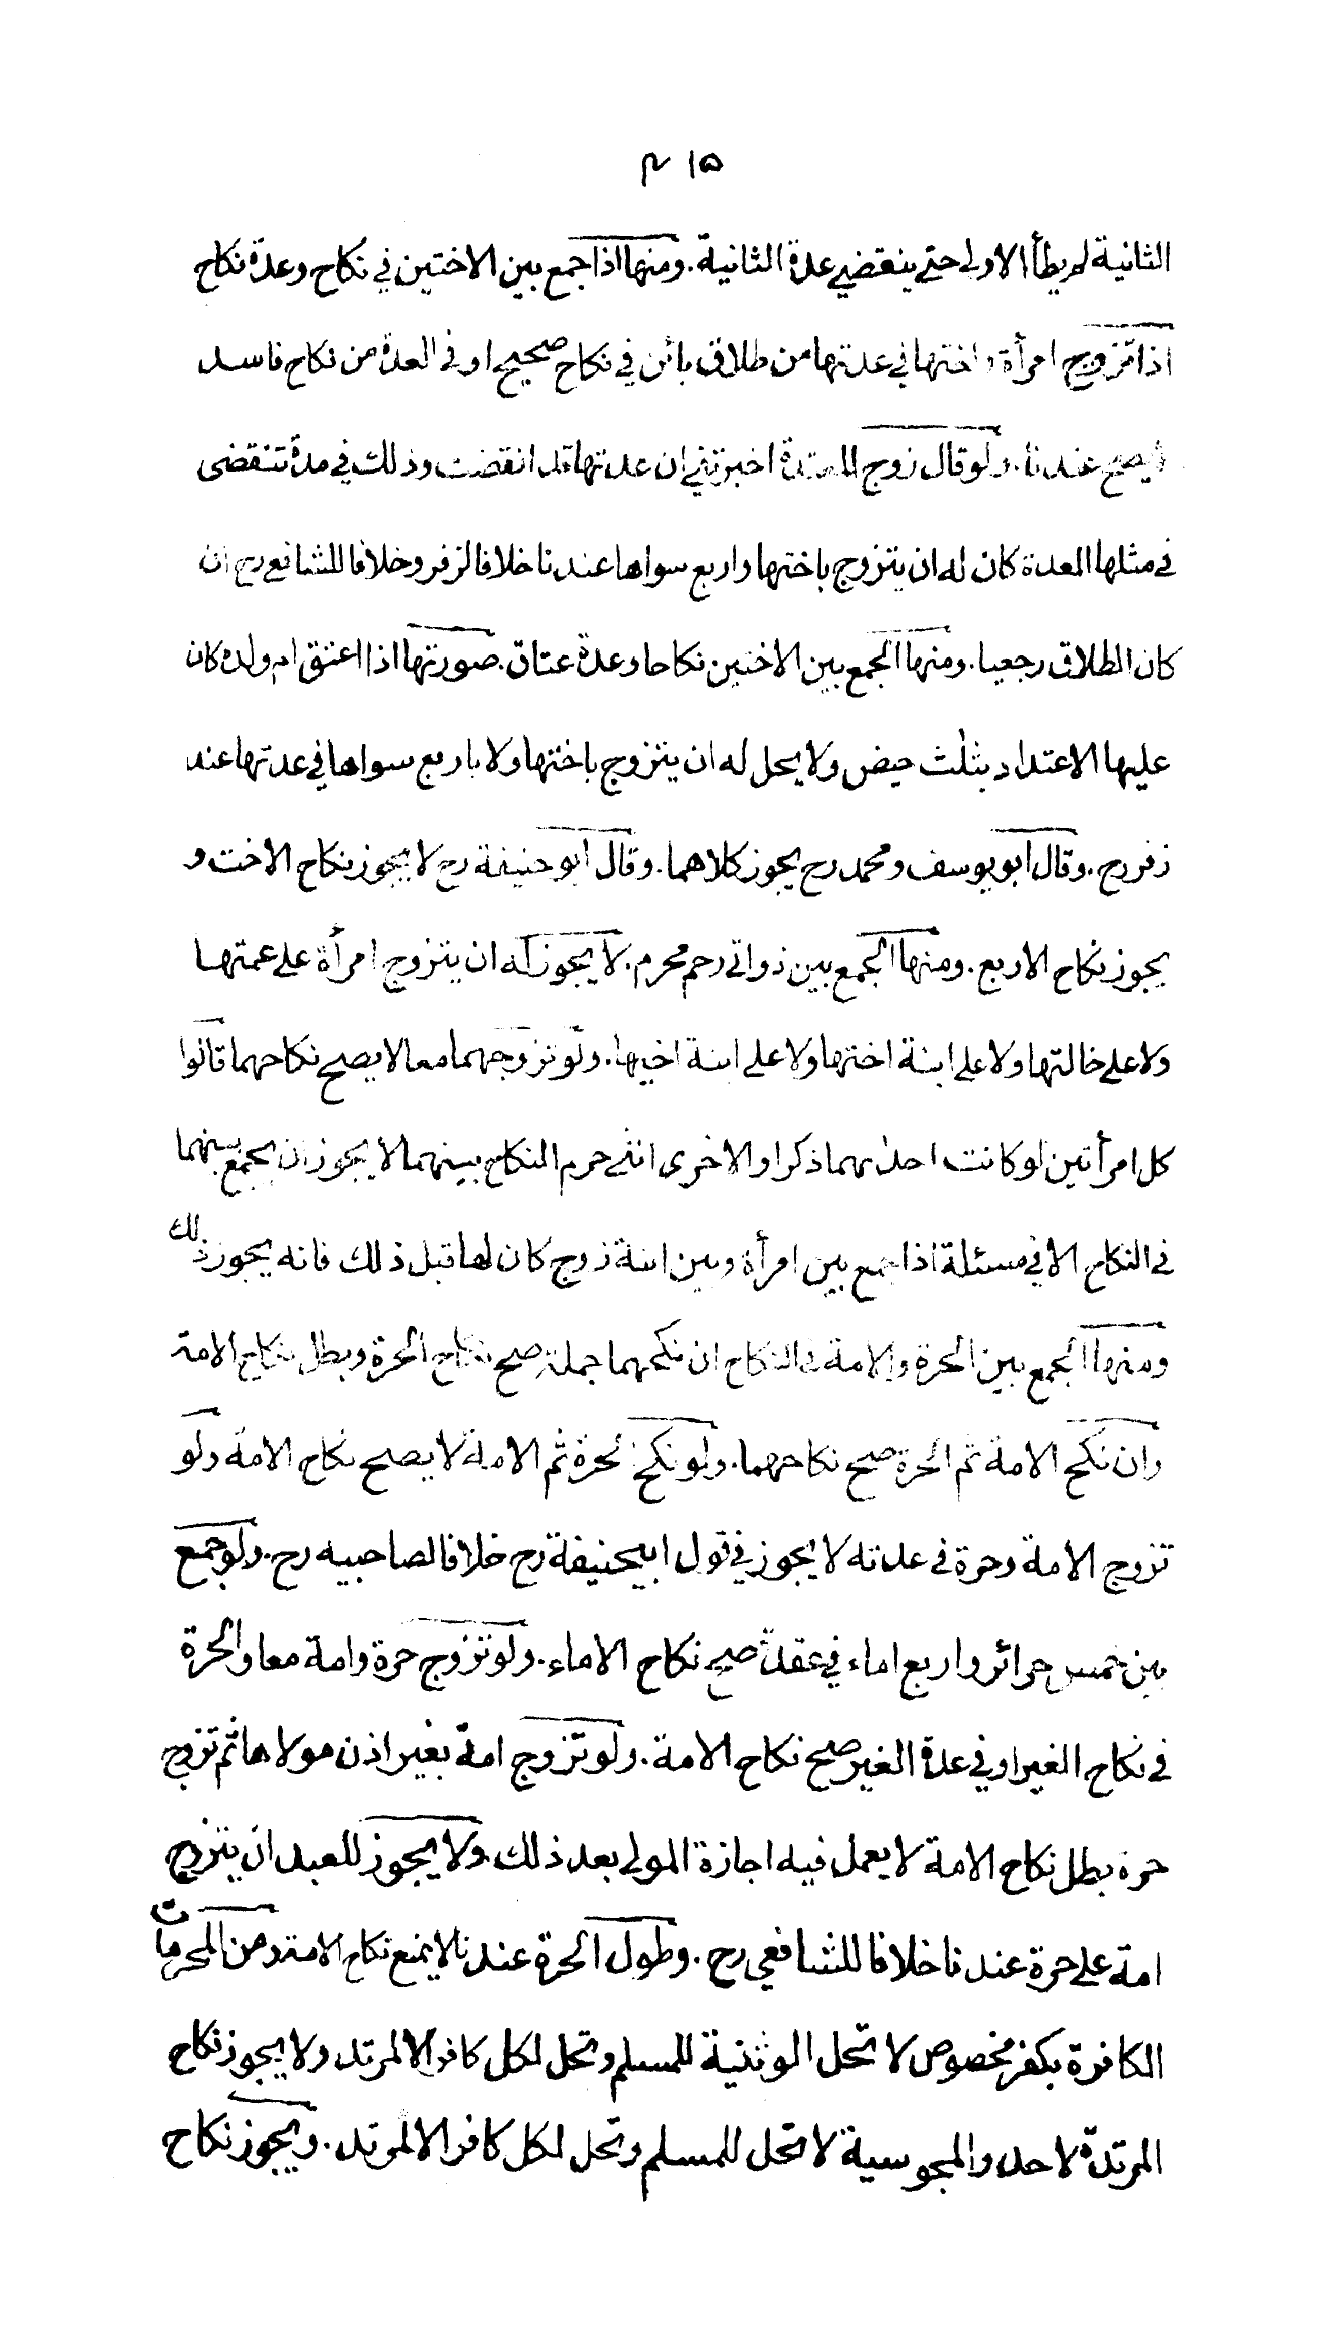 ٢١٥
الثانية لم يطأ الاولى حتى ينقضى عدة الثانية. ومنها اذا جمع بين الاختين في نكاح وعدة نكاح
اذا تزوج امرأة واختها في عدتها من طلاق بائن في نكاح صحيح او في العدة من نكاح فاسد
لا يصح عندنا. ولو قال زوج المعتدة اخبرتني ان عدتها قد انقضت وذلك في مدة تنقضى
في مثلها العدة كان له ان يتزوج باختها واربع سواها عندنا خلافا لزفر وخلافا للشافع رح ان
كان الطلاق رجعيا. ومنها الجمع بين الاختين نكاحا وعدة عتاق. صورتها اذا اعتق ام ولده كان
عليها الاعتداد بثلث حيض ولا يحل له ان يتزوج باختها ولا باربع سواها في عدتها عند
زفر رح. وقال ابو يوسف ومحمد رح يجوز كلاهما. وقال ابو حنيفة رح لا يجوز نكاح الاخت و
يجوز نكاح الاربع. ومنها الجمع بين ذواتي رحم محرم. لا يجوز له ان يتزوج امرأة على عمتها
ولا على خالتها ولا على ابنة اختها ولا على ابنة اخيها. ولو تزوجهما معا لا يصح نكاحهما قالوا
كل امرأتين لو كانت احدٰىهما ذكرا والاخرى انثى حرم النكاح بينهما لا يجوز ان يجمع بينهما
في النكاح الا في مسئلة اذا جمع بين امرأة وبين ابنة زوج كان لها قبل ذلك فانه يجوز ذلك
ومنها الجمع بين الحرة والامة في النكاح ان نكحهما جملة صح نكاح الحرة وبطل نكاح الامة
وان نكح الامة ثم الحرة صح نكاحهما. ولو نكح الحرة ثم الامة لا يصح نكاح الامة ولو
تزوج الامة وحرة في عدته لا يجوز في قول ابيحنيفة رح خلافا لصاحبيه رح. ولو جمع
بين خمس حرائر واربع اماء في عقدة صح نكاح الاماء. ولو تزوج حرة وامة معا والحرة
في نكاح الغير او في عدة الغير صح نكاح الامة. ولو تزوج امة بغير اذن مولاها ثم تزوج
حرة بطل نكاح الامة لا يعمل فيه اجازة المولى بعد ذلك. ولا يجوز للعبد ان يتزوج
امة على حرة عندنا خلافا للشافعي رح. وطول الحرة عندنا لا يمنع نكاح الامة ومن المحرمات
الكافرة بكفر مخصوص لا تحل الوثنية للمسلم وتحل لكل كافر الا لمرتد ولا يجوز نكاح
المرتدة لاحد والمجوسية لا تحل للمسلم وتحل لكل كافر الا لمرتد. ويجوز نكاح